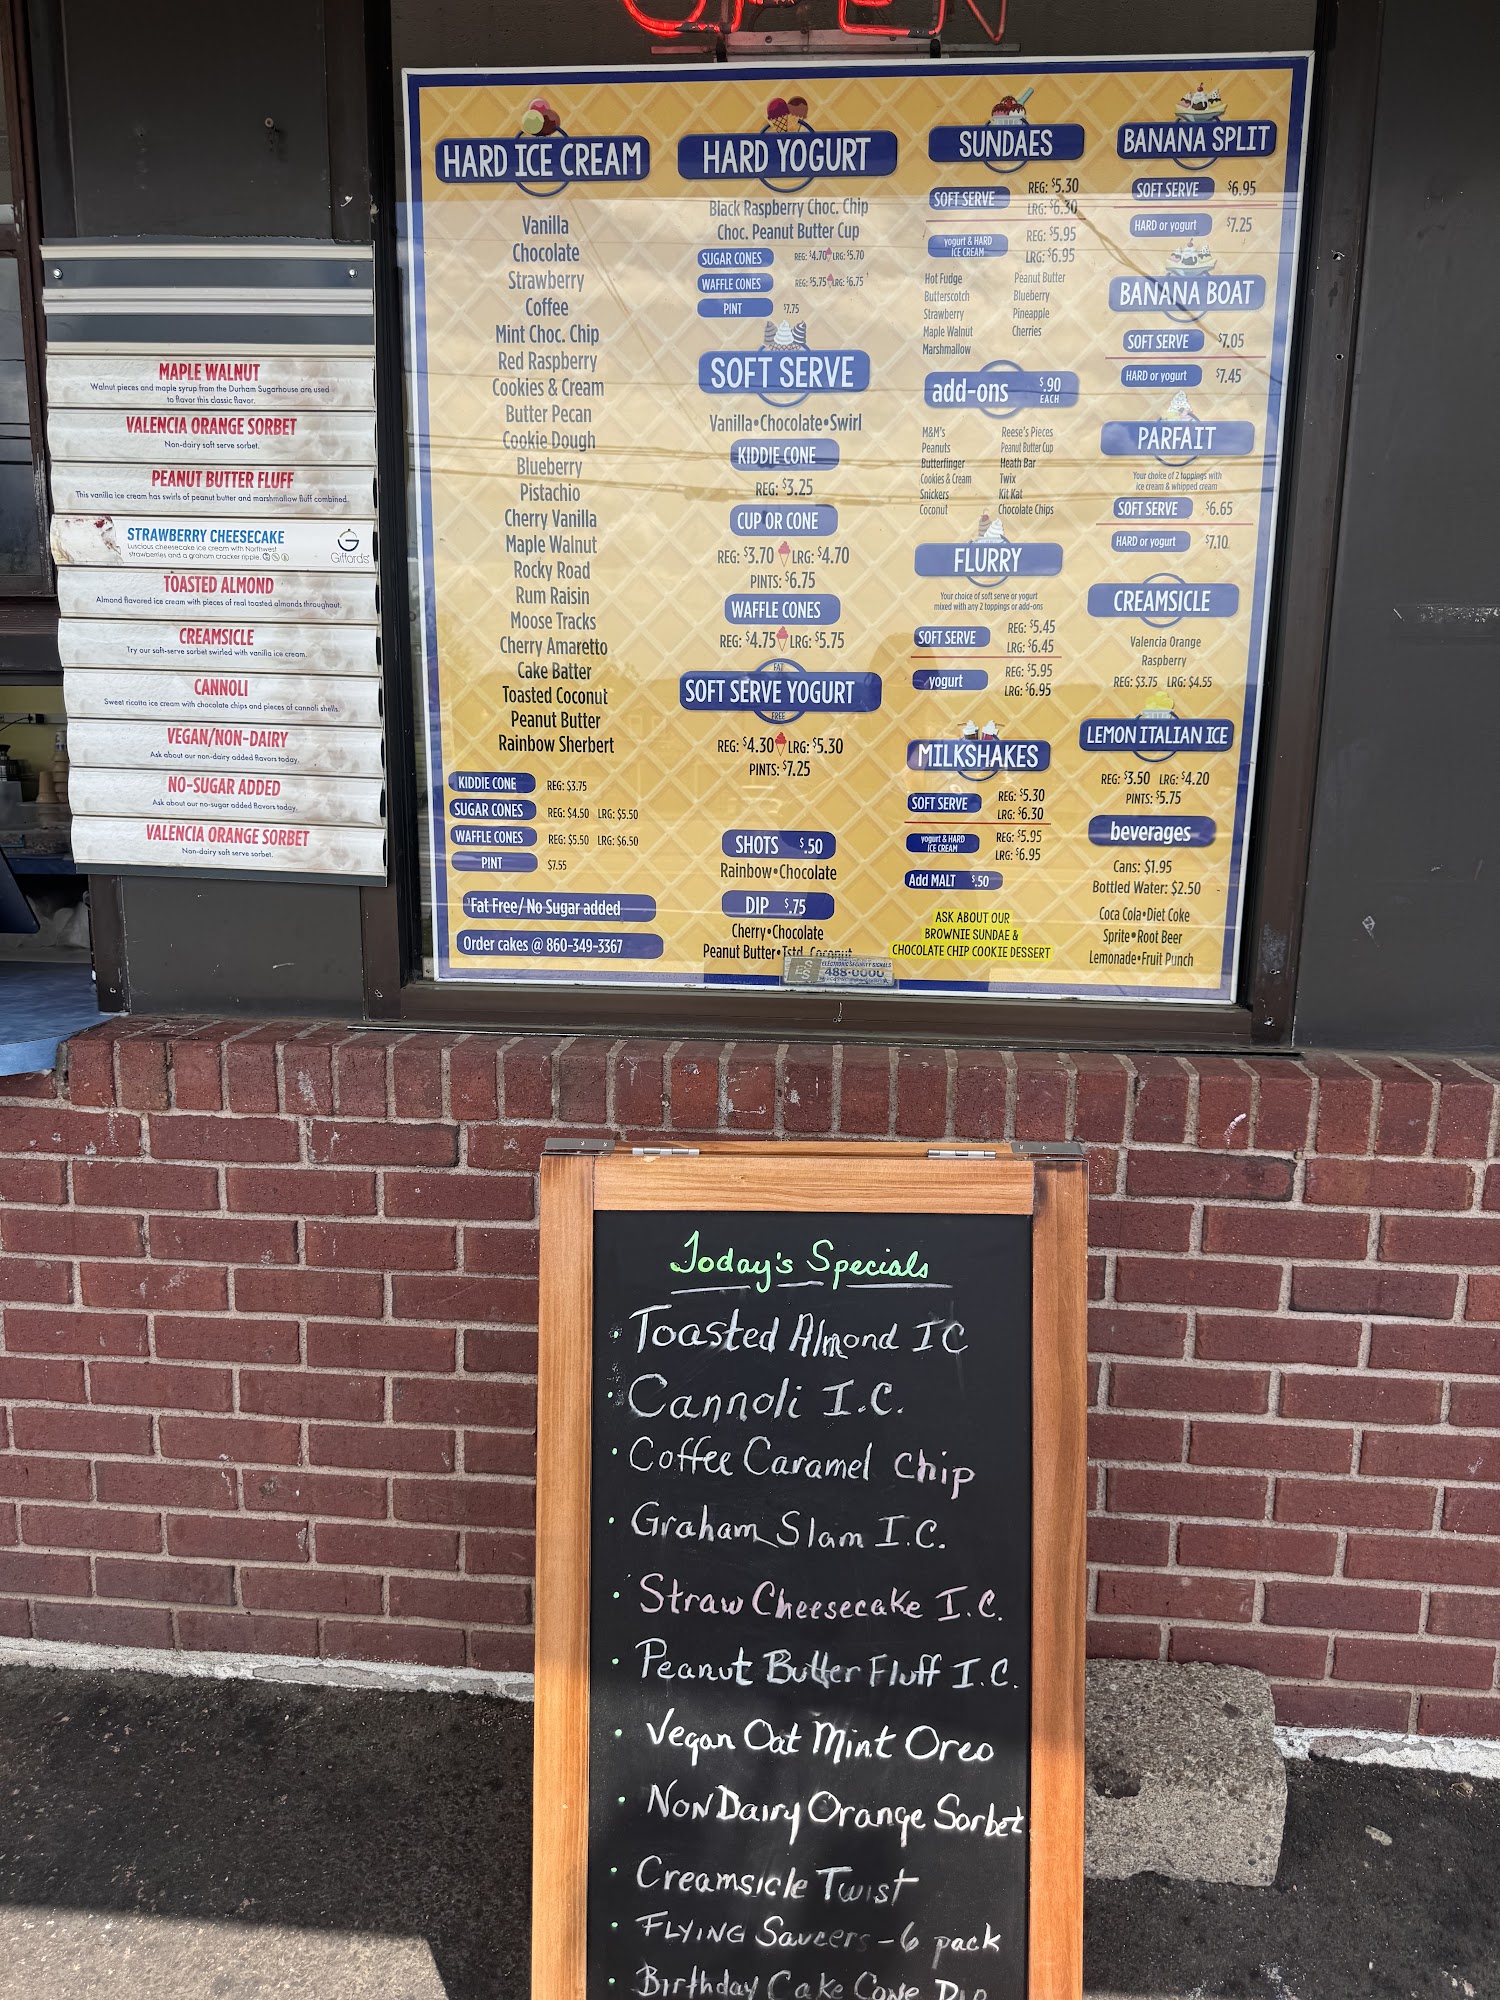 OPEN
MAPLE WALNUT
Walnut pieces and maple syrup from the Durham Sugarhouse are used
to flavor this classic flavor.
VALENCIA ORANGE SORBET
Non-dairy soft serve sorbet.
PEANUT BUTTER FLUFF
This vanilla ice cream has swirls of peanut butter and marshmallow fluff combined.
STRAWBERRY CHEESECAKE
Luscious cheesecake ice cream with Northwest
strawberries and a graham cracker ripple.
Gifford's
TOASTED ALMOND
Almond flavored ice cream with pieces of real toasted almonds throughout.
CREAMSICLE
Try our soft-serve sorbet swirled with vanilla ice cream.
CANNOLI
Sweet ricotta ice cream with chocolate chips and pieces of cannoli shells.
VEGAN/NON-DAIRY
Ask about our non-dairy added flavors today.
NO-SUGAR ADDED
Ask about our no-sugar added flavors today.
VALENCIA ORANGE SORBET
Non-dairy soft serve sorbet.
HARD ICE CREAM
Vanilla
Chocolate
Strawberry
Coffee
Mint Choc. Chip
Red Raspberry
Cookies & Cream
Butter Pecan
Cookie Dough
Blueberry
Pistachio
Cherry Vanilla
Maple Walnut
Rocky Road
Rum Raisin
Moose Tracks
Cherry Amaretto
Cake Batter
Toasted Coconut
Peanut Butter
Rainbow Sherbert
KIDDIE CONE REG: $3.75
SUGAR CONES REG: $4.50 LRG: $5.50
WAFFLE CONES REG: $5.50 LRG: $6.50
PINT $7.55
Fat Free/No Sugar added
Order cakes @ 860-349-3367
HARD YOGURT
Black Raspberry Choc. Chip
Choc. Peanut Butter Cup
SUGAR CONES REG: $4.70 LRG: $5.70
WAFFLE CONES REG: $5.75 LRG: $6.75
PINT $7.75
SOFT SERVE
Vanilla•Chocolate•Swirl
KIDDIE CONE
REG: $3.25
CUP OR CONE
REG: $3.70 LRG: $4.70
PINTS: $6.75
WAFFLE CONES
REG: $4.75 LRG: $5.75
FAT
SOFT SERVE YOGURT
FREE
REG: $4.30 LRG: $5.30
PINTS: $7.25
SHOTS $.50
Rainbow•Chocolate
DIP $.75
Cherry•Chocolate
Peanut Butter•Tstd. Coconut
ELECTRONIC SECURITY SIGNALS
488-0000
SUNDAES
SOFT SERVE REG: $5.30
LRG: $6.30
yogurt & HARD
ICE CREAM
REG: $5.95
LRG: $6.95
Hot Fudge Peanut Butter
Butterscotch Blueberry
Strawberry Pineapple
Maple Walnut Cherries
Marshmallow
add-ons $.90
EACH
M&M's Reese's Pieces
Peanuts Peanut Butter Cup
Butterfinger Heath Bar
Cookies & Cream Twix
Snickers Kit Kat
Coconut Chocolate Chips
FLURRY
Your choice of soft serve or yogurt
mixed with any 2 toppings or add-ons
SOFT SERVE REG: $5.45
LRG: $6.45
yogurt REG: $5.95
LRG: $6.95
MILKSHAKES
SOFT SERVE REG: $5.30
LRG: $6.30
yogurt & HARD
ICE CREAM
REG: $5.95
LRG: $6.95
Add MALT $.50
ASK ABOUT OUR
BROWNIE SUNDAE &
CHOCOLATE CHIP COOKIE DESSERT
BANANA SPLIT
SOFT SERVE $6.95
HARD or yogurt $7.25
BANANA BOAT
SOFT SERVE $7.05
HARD or yogurt $7.45
PARFAIT
Your choice of 2 toppings with
ice cream & whipped cream
SOFT SERVE $6.65
HARD or yogurt $7.10
CREAMSICLE
Valencia Orange
Raspberry
REG: $3.75 LRG: $4.55
LEMON ITALIAN ICE
REG: $3.50 LRG: $4.20
PINTS: $5.75
beverages
Cans: $1.95
Bottled Water: $2.50
Coca Cola•Diet Coke
Sprite•Root Beer
Lemonade•Fruit Punch
Today's Specials
• Toasted Almond IC
• Cannoli I.C.
• Coffee Caramel Chip
• Graham Slam I.C.
• Straw Cheesecake I.C.
• Peanut Butter Fluff I.C.
• Vegan Oat Mint Oreo
• Non Dairy Orange Sorbet
• Creamsicle Twist
• FLYING Saucers - 6 pack
• Birthday Cake Cone Dip